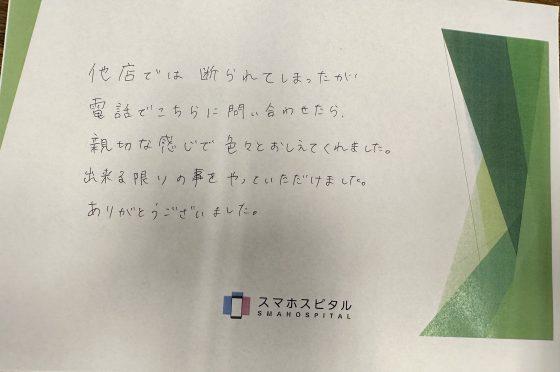 他店では断られてしまったが
電話でこちらに問い合わせたら、
親切な感じで色々とおしえてくれました。
出来る限りの事をやっていただけました。
ありがとうございました。
スマホスピタル
SMAHOSPITAL